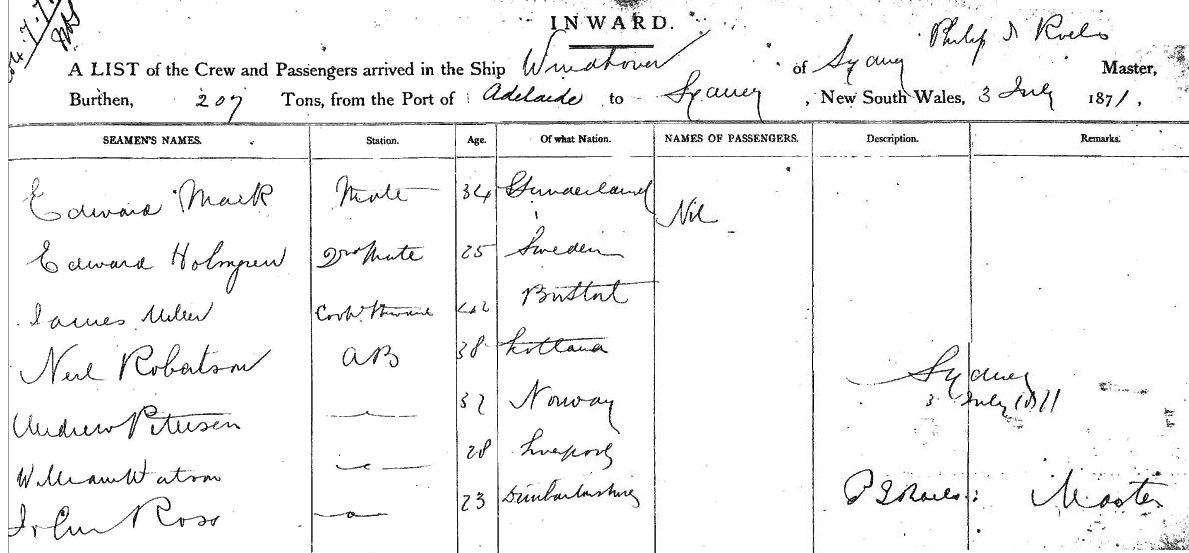 INWARD.
Philip
A LIST of the Crew and Passengers arrived in the Ship Windhover of Sydney Master,
Burthen, 207 Tons, from the Port of Adelaide to Sydney, New South Wales, 3 July 1871.
SEAMEN'S NAMES. Station. Age. Of what Nation. NAMES OF PASSENGERS. Description. Remarks.
Edward Mark Mate 34 Sunderland
Nil
Edward Holmgren 2nd Mate 25 Sweden
James Cook 42
Neil Robertson AB 38 Scotland
Sydney
3 July 1871
Andrew Petersen 37 Norway
William Watson 28 Liverpool
John Ross 23 Dumbartonshire
Master